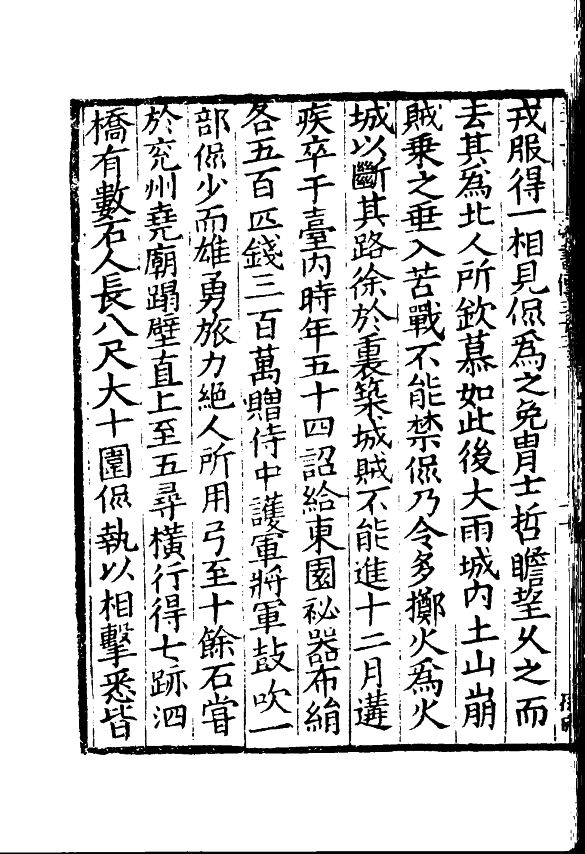 戎服得一相見侃爲之免冑士哲瞻望乆之而
去其為北人所欽慕如此後大雨城內土山崩
賊乗之垂入苦戰不能禁侃乃令多擲火爲火
城以斷其路徐於裏築城賊不能進十二月遘
疾卒于臺內時年五十四詔給東園祕器布絹
各五百匹錢三百萬贈侍中護軍將軍鼓吹一
部侃少而雄勇旅力絕人所用弓至十餘石甞
於兖州堯廟蹋壁直上至五尋橫行得七跡泗
橋有數石人長八尺大十圍侃執以相擊悉皆